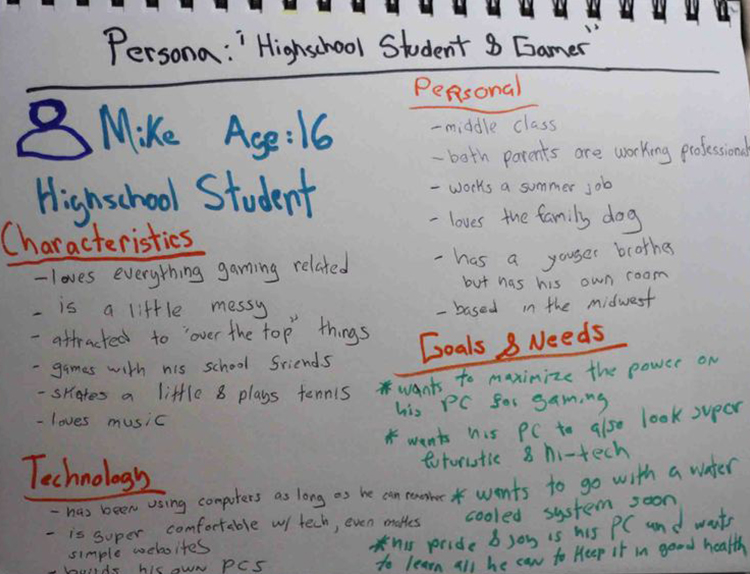 Persona: "Highschool Student & Gamer"
Mike Age: 16
Highschool Student
Characteristics
- loves everything gaming related
- is a little messy
- attracted to "over the top" things
- games with his school friends
- skates a little & plays tennis
- loves music
Technology
- has been using computers as long as he can remember
- is super comfortable w/ tech, even makes
simple websites
- builds his own PCs
Personal
- middle class
- both parents are working professional
- works a summer job
- loves the family dog
- has a youger brother
but has his own room
- based in the midwest
Goals & Needs
* wants to maximize the power on
his PC for gaming
* wants his PC to also look super
futuristic & hi-tech
* wants to go with a water
cooled system soon
* his pride & joy is his PC and wants
to learn all he can to keep it in good health